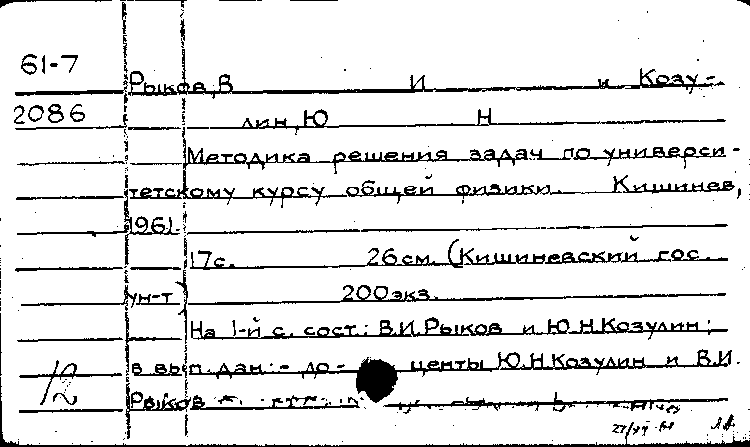 61-7 Рыков, В И и Козу-
2086 лин, Ю Н
Методика решения задач по универси-
тетскому курсу общей физики. Кишинев,
1961.
17с. 26см. (Кишиневский гос.
ун-т) 200экз.
На 1-й с. сост.: В.И.Рыков и Ю.Н.Козулин;
в вып. дан.:- до- центы Ю.Н.Козулин и В.И.
12 Рыков